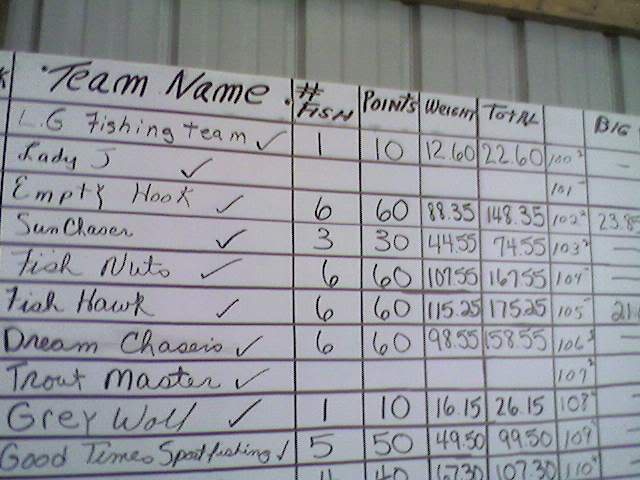 Team Name # FISH POINTS WEIGHT TOTAL BIG
L.G Fishing Team ✓ 1 10 12.60 22.60 100 —
Lady J ✓ 101
Empty Hook ✓ 6 60 88.35 148.35 102 23.85
SunChaser ✓ 3 30 44.55 74.55 103 —
Fish Nuts ✓ 6 60 107.55 167.55 104 —
Fish Hawk ✓ 6 60 115.25 175.25 105 21.
Dream Chasers ✓ 6 60 98.55 158.55 106 —
Trout Master ✓ 107
Grey Wolf ✓ 1 10 16.15 26.15 108 —
Good Times Sportfishing ✓ 5 50 49.50 99.50 109 —
4 40 67.30 107.30 110 —